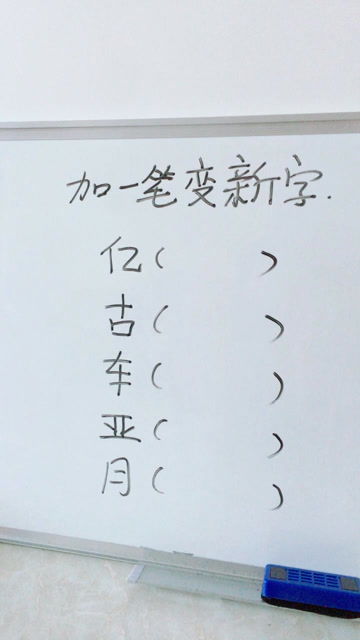 加一笔变新字.
亿( )
古( )
车( )
亚( )
月( )